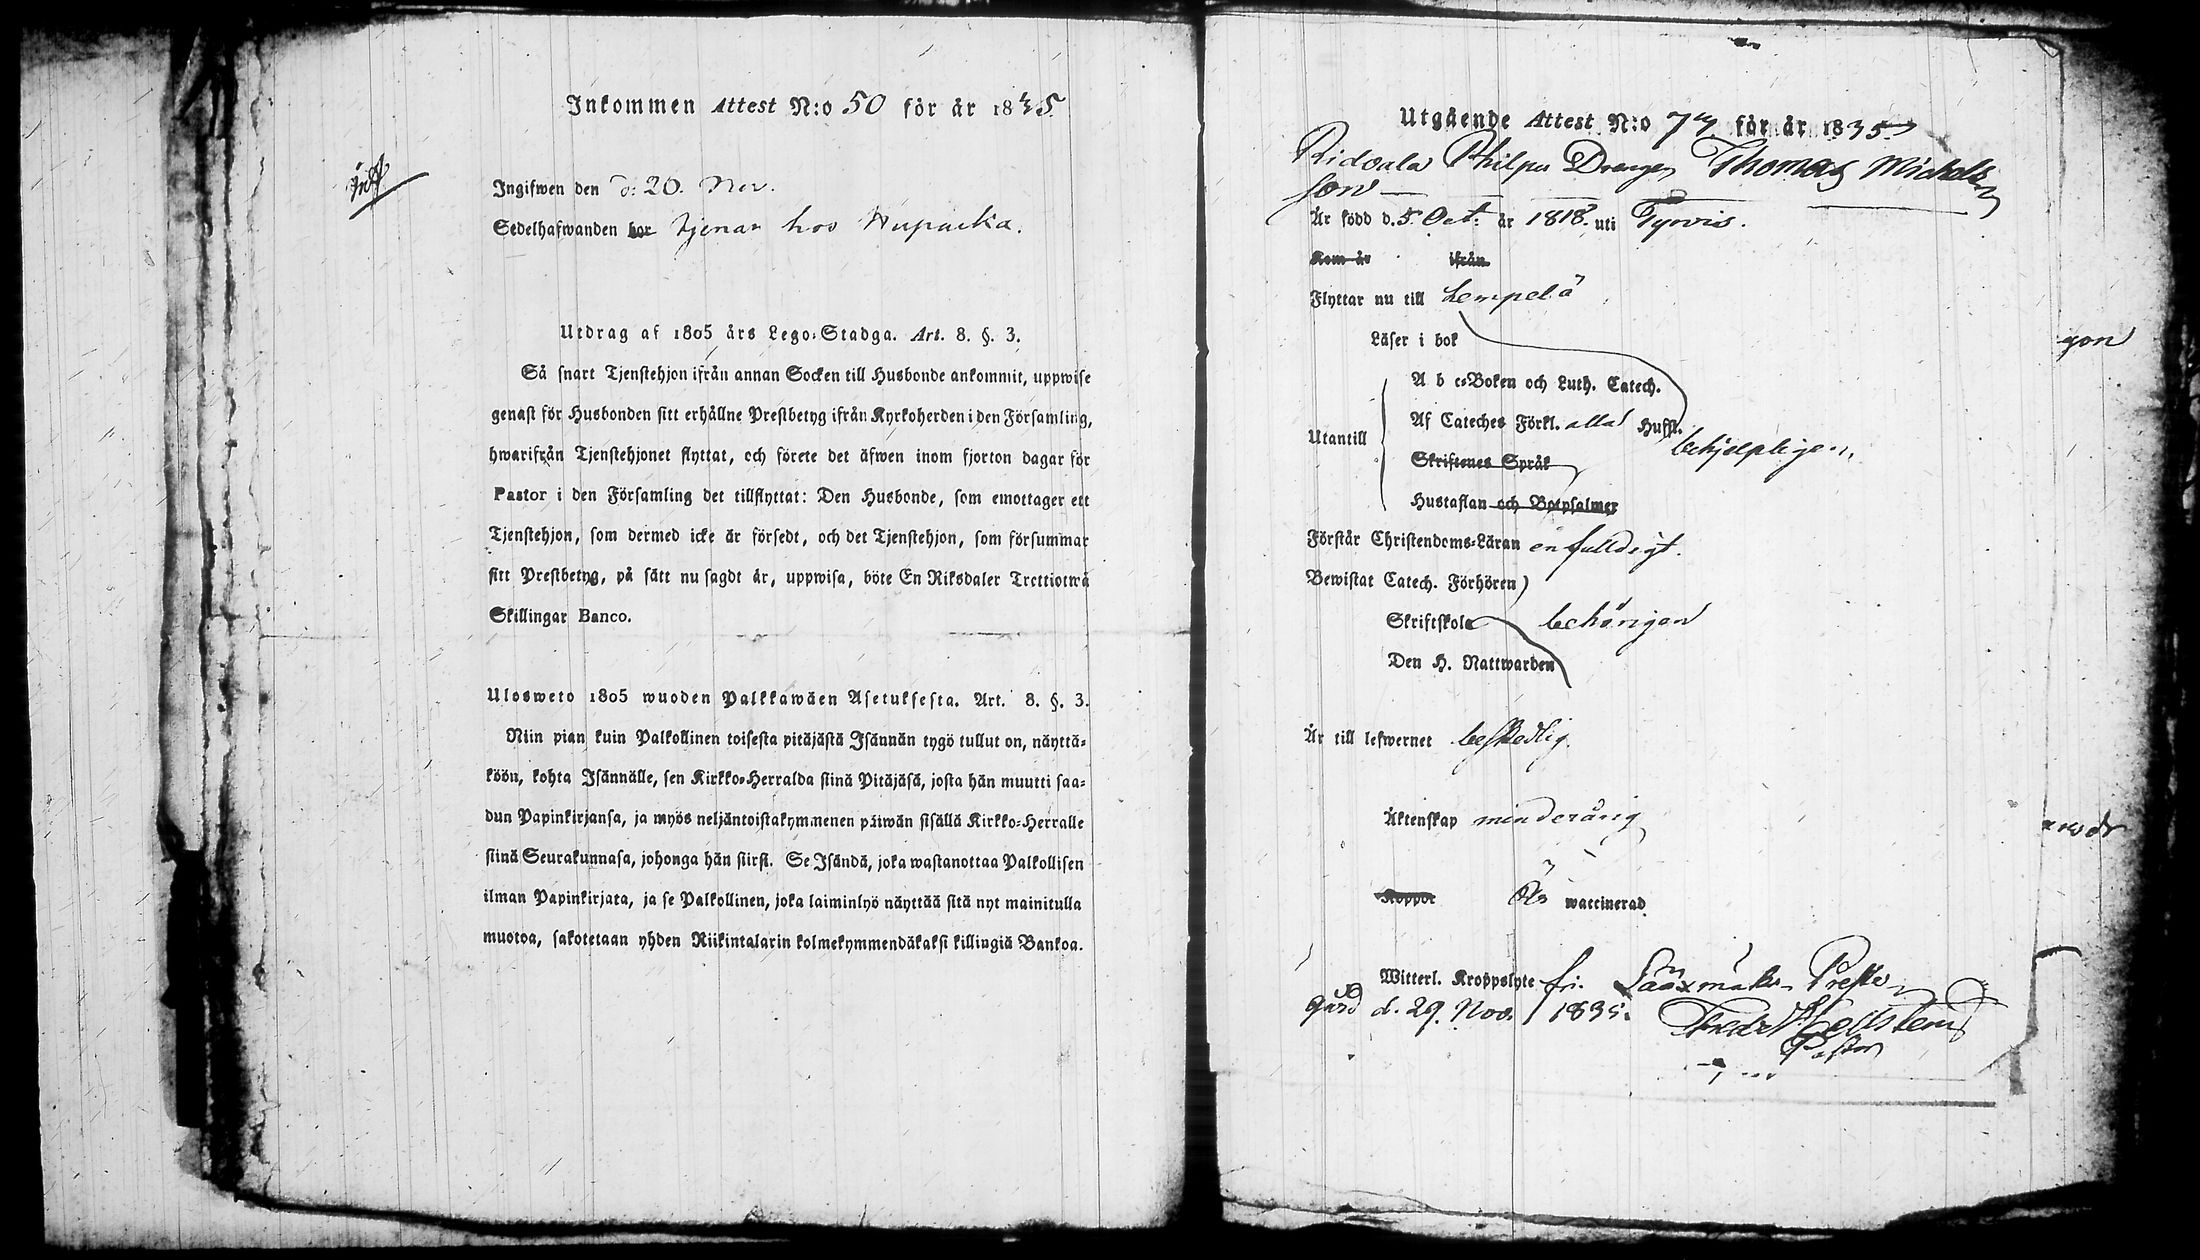 Inkommen Attest N:o 50 för år 1835
Ingifwen den d: 20. Nov.
Sedelhafwanden bor tjenar hos
Utdrag af 1805 års Lego-Stadga. Art. 8. §. 3.
Så snart Tjenstehjon ifrån annan Socken till Husbonde ankommit, uppwise
genast för Husbonden sitt erhållne Prestbetyg ifrån Kyrkoherden i den Församling,
hwarifrån Tjenstehjonet flyttat, och förete det äfwen inom fjorton dagar för
Pastor i den Församling det tillflyttat: Den Husbonde, som emottager ett
Tjenstehjon, som dermed icke är försedt, och det Tjenstehjon, som försummar
sitt Prestbetyg, på sätt nu sagdt är, uppwisa, böte En Riksdaler Trettiotwå
Skillingar Banco.
Ulosweto 1805 wuoden Palkkawäen Asetuksesta. Art. 8. §. 3.
Niin pian kuin Palkollinen toisesta pitäjästä Isännän tygö tullut on, näyttä-
köön, kohta Isännälle, sen Kirkko-Herralda siinä Pitäjäsä, josta hän muutti saa-
dun Papinkirjansa, ja myös neljäntoistakymmenen päiwän sisällä Kirkko-Herralle
siinä Seurakunnasa, johonga hän siirsi. Se Isändä, joka wastanottaa Palkollisen
ilman Papinkirjata, ja se Palkollinen, joka laiminlyö näyttää sitä nyt mainitulla
muotoa, sakotetaan yhden Riikintalarin kolmekymmendäkaksi killingiä Bankoa.
Utgående Attest N:o för år 1835
Ridvala Philpu Drengen Thomas Michels
son
Är född d. 5 Oct. år 1818. uti Tyrvis.
Kom år ifrån
Flyttar nu till Lempelä
Läser i bok
A b c-Boken och Luth. Catech.
Af Cateches Förkl. alla Hufst.
Utantill
behjelpligen,
Skriftenes Språk
Hustaflan och Botpsalmer
Förstår Christendoms-Läran enfaldigt.
Bewistat Catech. Förhören
Skriftskola behörigen
Den H. Nattwarden
Är till lefwernet beskedlig.
Äktenskap minderårig
Koppor Är waccinerad
Witterl. Kroppslyte fri. Sääxmäki Preste
gård d. 29. Nov. 1835. Fredr Hellsten
Pastor